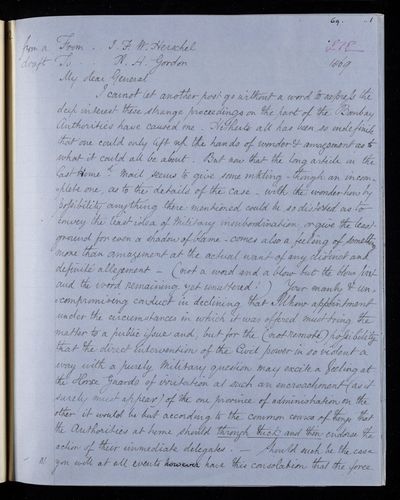 69. 1
from a From . . J. F. W. Herschel
draft To . . . H. A. Gordon 1869
My dear General
I cannot let another post go without a word to express the
deep interest these strange proceedings on the part of the Bombay
Authorities have caused me. Hitherto all has been so indefinite
that one could only lift up the hands of wonder & amazement as to
what it could all be about. But now that the long article in the
East Home Mail seems to give some inkling - though an incom-
plete one, as to the details of the case - with the wonder how by
possibility anything there mentioned could be so distorted as to
convey the least idea of Military insubordination, or give the least
ground for even a shadow of blame - comes also a feeling of something
more than amazement at the actual want of any distinct and
definite allegement - (not a word and a blow but the blow first
and the word remaining yet unuttered!) Your manly & un-
compromising conduct in declining that appointment
under the circumstances in which it was offered must bring the
matter to a public issue and, but for the (not remote) possibility
that the direct intervention of the Civil power in so violent a
way with a purely Military question may excite a feeling at
the Horse Guards of irritation at such an encroachment (as it
surely must appear) of the one province of administration on the
other it would be but according to the common course of things that
the Authorities at home should through thick and thin endorse the
action of their immediate delegates. - Should such be the case
you will at all events however have this consolation that the force